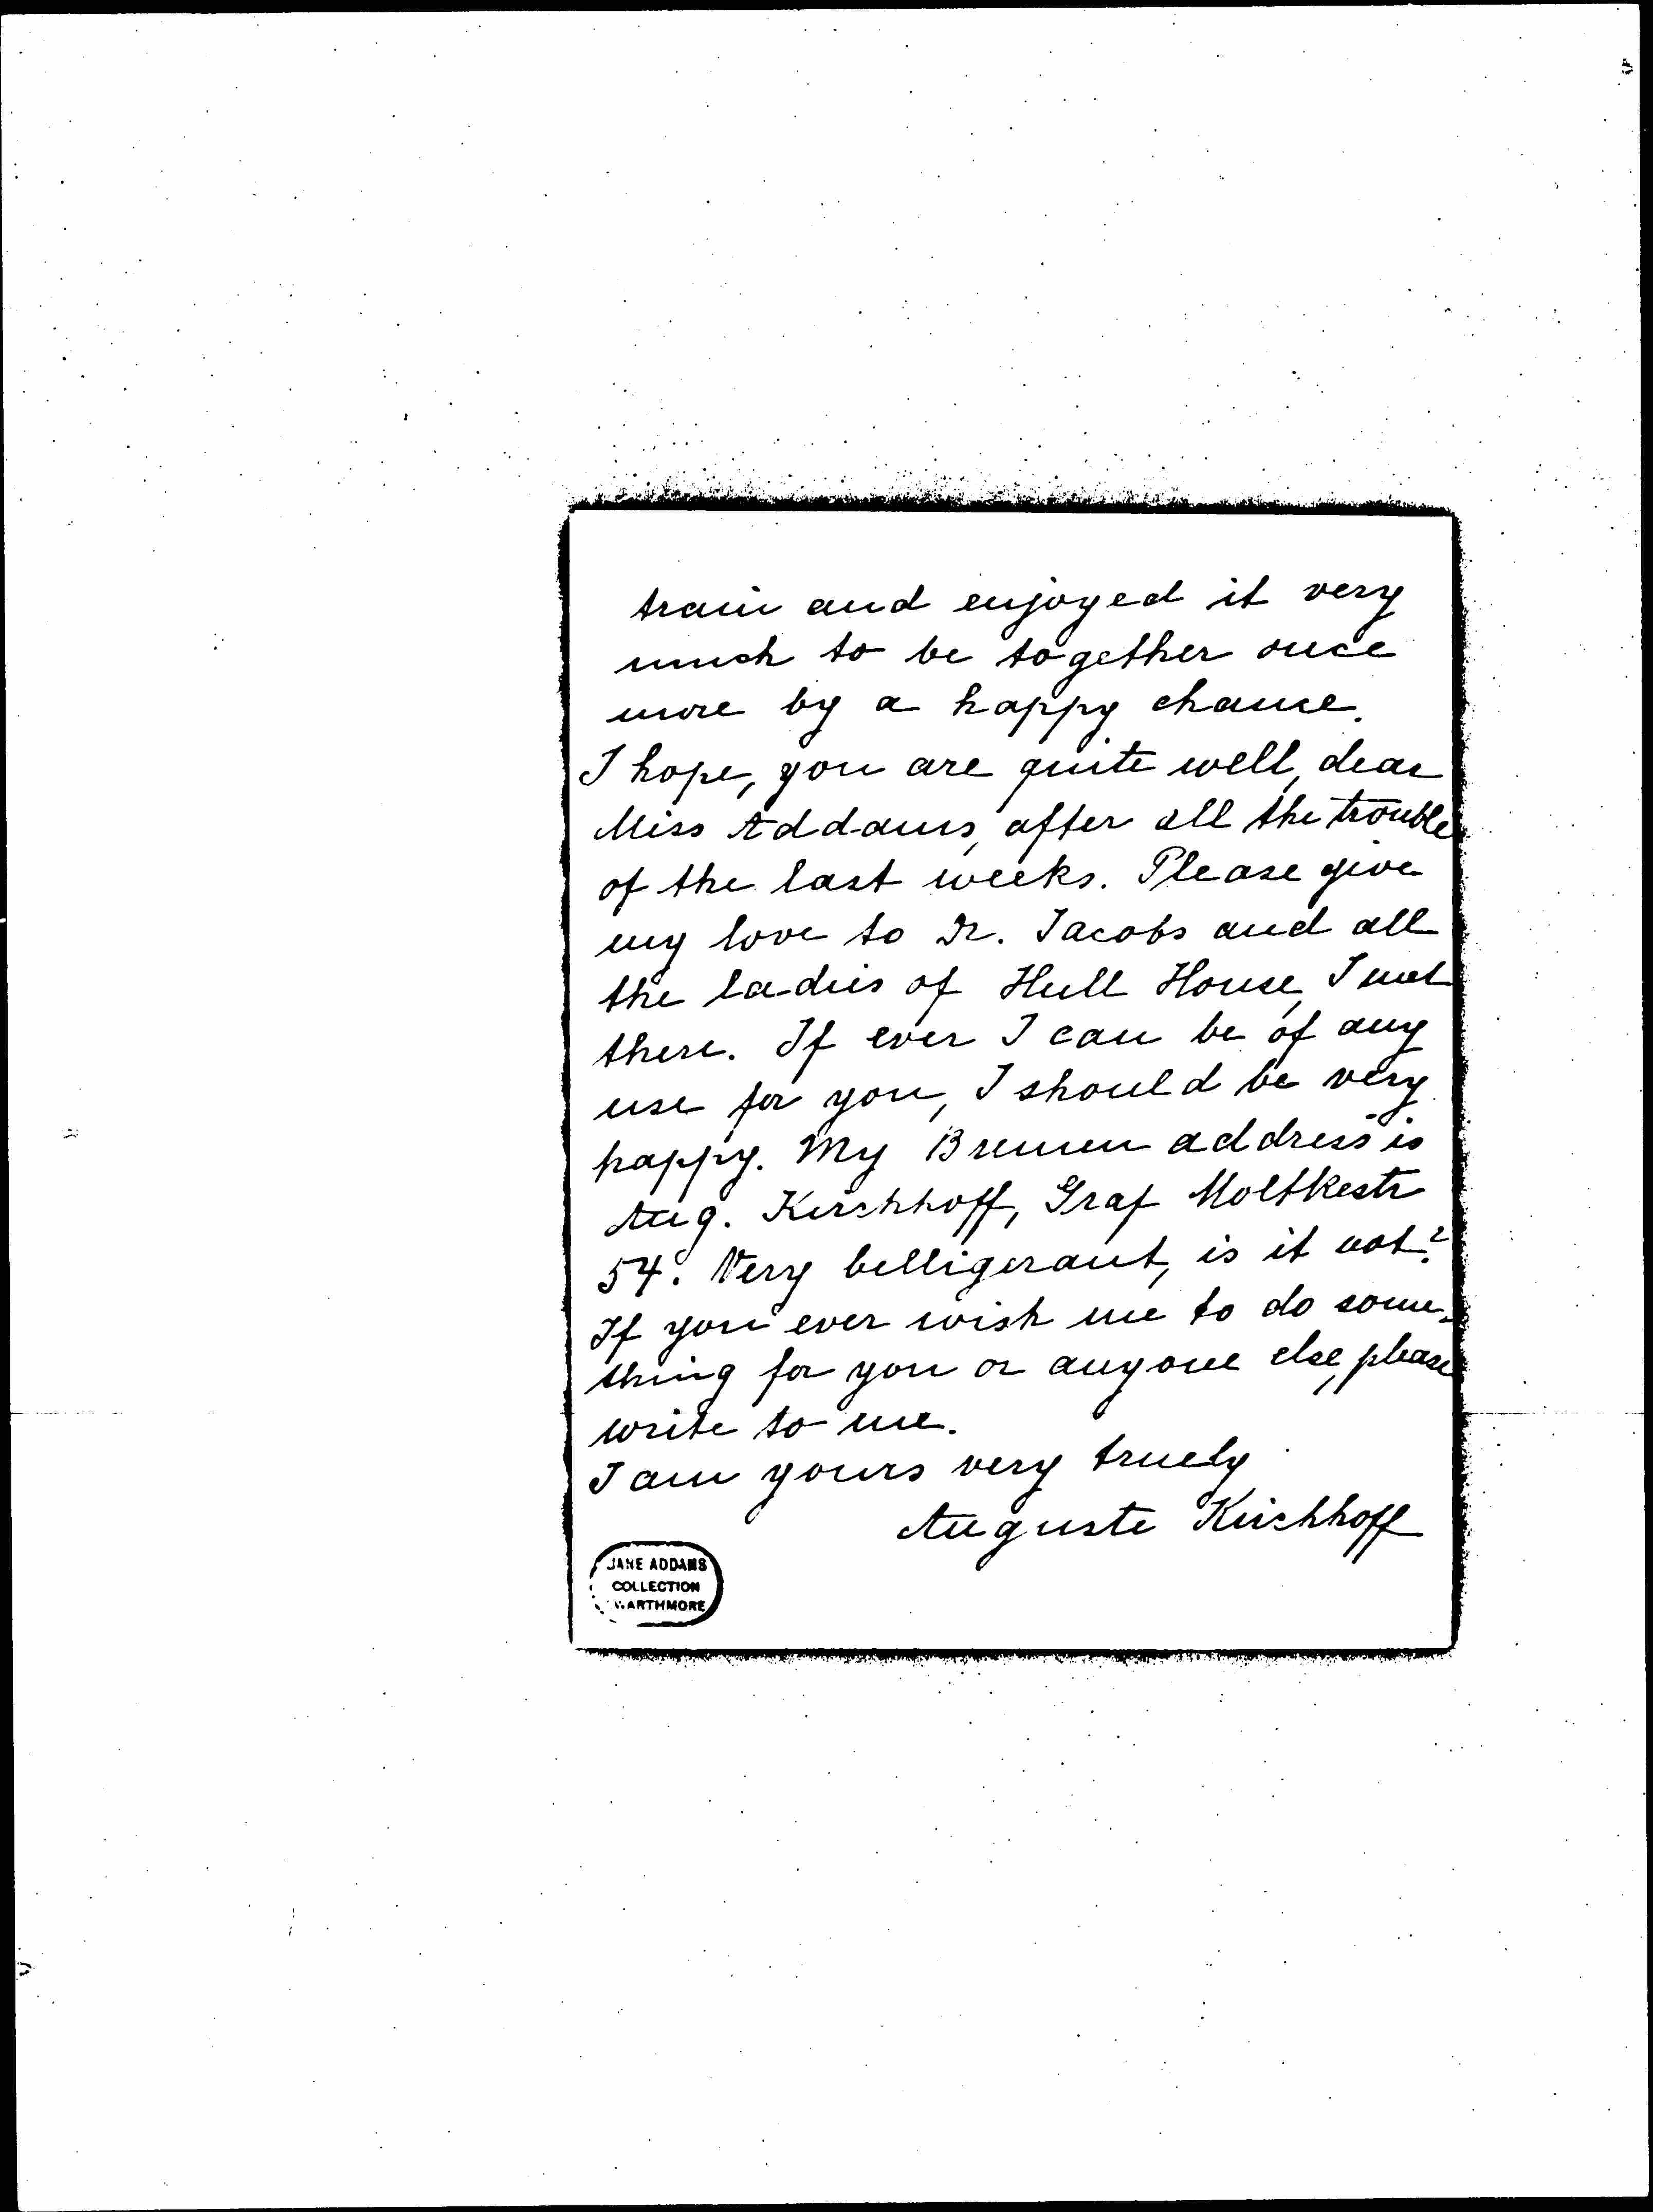 train and enjoyed it very
much to be together once
more by a happy chance.
I hope, you are quite well, dear
Miss Addams, after all the trouble
of the last weeks. Please give
my love to Dr. Jacobs and all
the ladies of Hull House, I met
there. If ever I can be of any
use for you, I should be very
happy. My Bremen address is
Aug. Kirchhoff, Graf Moltkestr
54. Very belligerant, is it not?
If you ever wish me to do some-
thing for you or anyone else, please
write to me.
I am yours very truely
Auguste Kirchhoff
JANE ADDAMS
COLLECTION
WARTHMORE